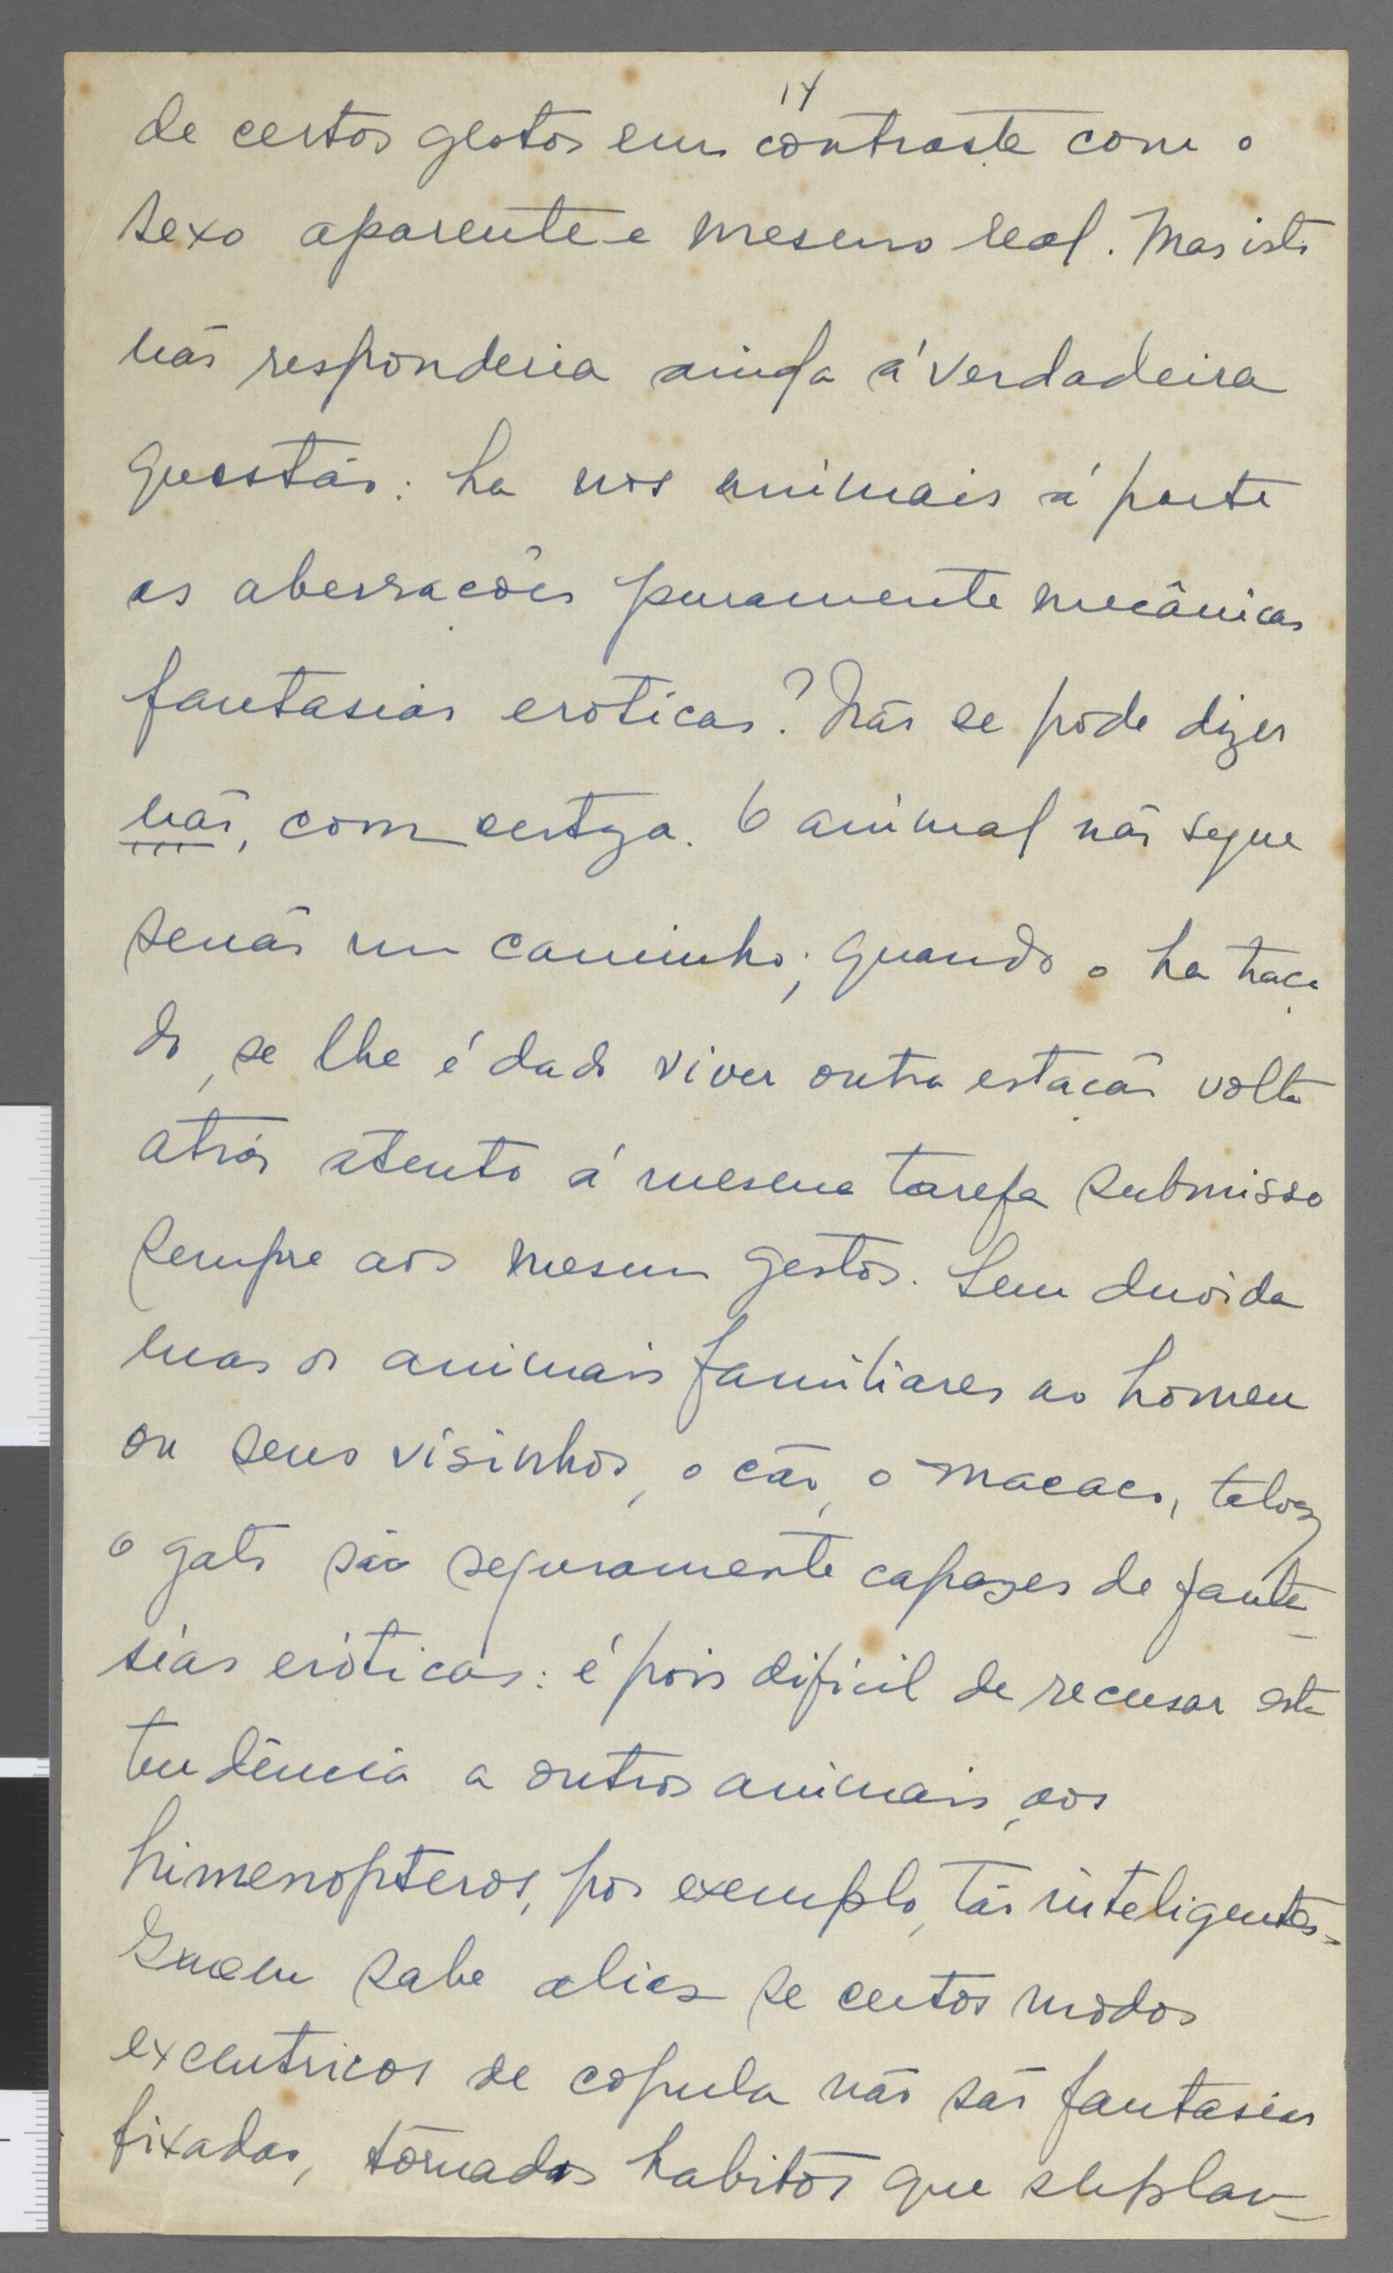 14
de certos gestos em contraste com o
sexo aparente e mesmo real. Mas isto
não responderia ainda á verdadeira
questão: ha nos animais á parte
as aberrações puramente mecânicas
fantasias eroticas? Não se póde dizer
não, com certeza. O animal não segue
senão um caminho; quando o ha traça
do, se lhe é dado viver outra estação volta
atrás atento á mesma tarefa submisso
sempre aos mesmos gestos. Sem duvida
mas os animais familiares ao homem
ou seus visinhos, o cão, o macaco, talvez
o gato são seguramente capazes de fanta_
sias eróticas: é pois dificil de recusar esta
tendência a outros animais, aos
himenopteros, por exemplo, tão inteligentes.
Quem sabe alias se certos modos
excentricos de copula não são fantasias
fixadas, tornadas habitos que suplan_